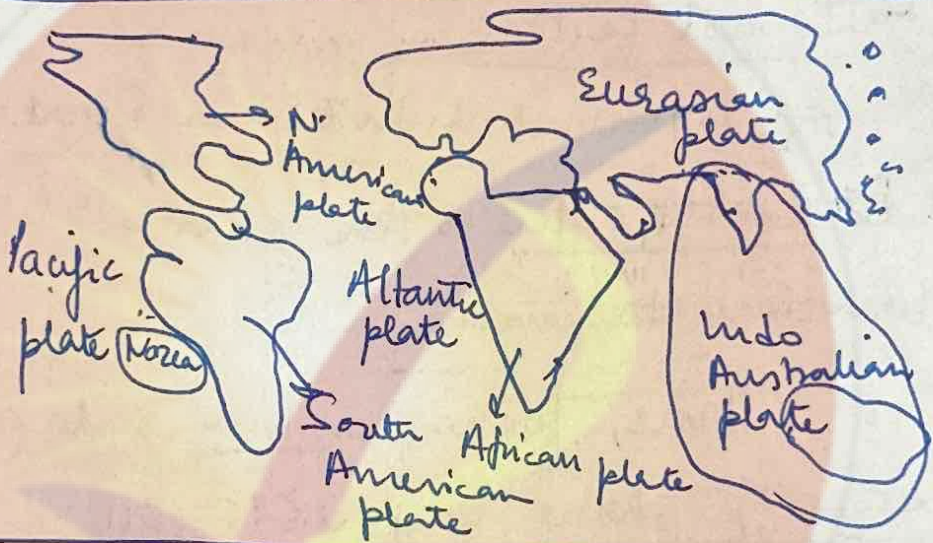 N.
American
plate
Eurasian
plate
Pacific
plate
Nazca
Altantic
plate
South
American
plate
African plate
Indo
Australian
plate